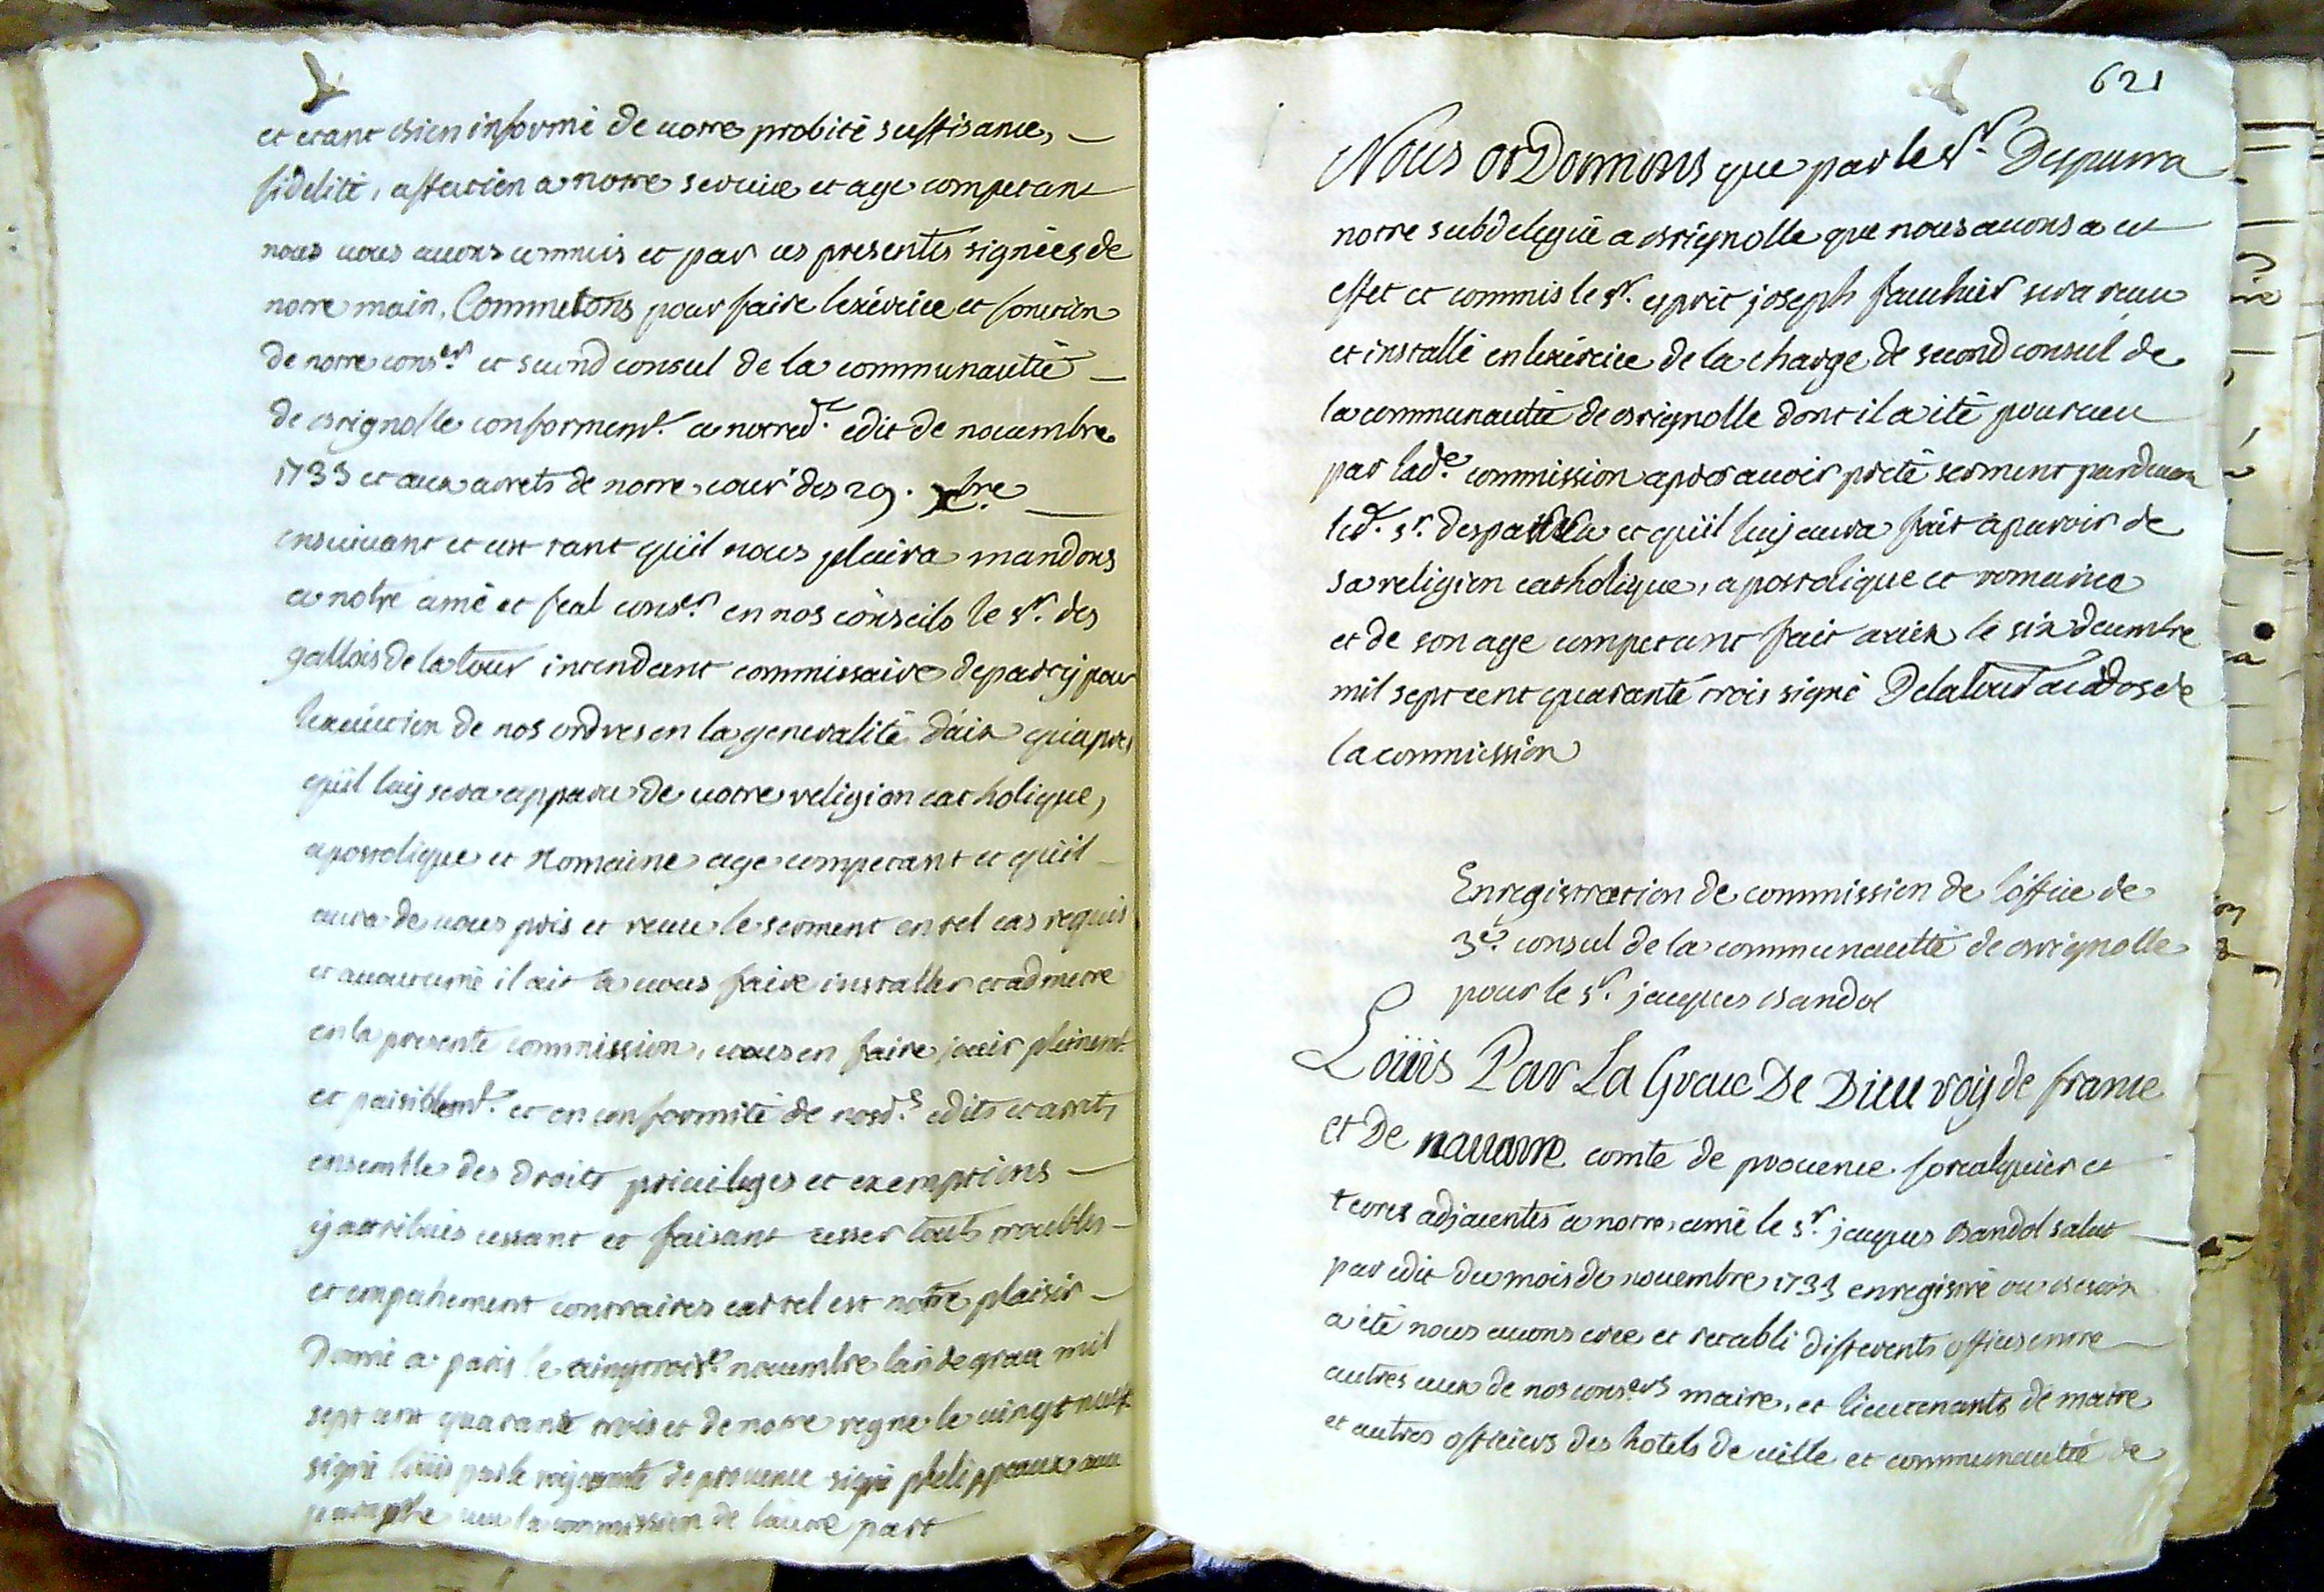 et etant bien informé de votre probité suffisance,
fidelité, affection a notre service et age competant
nous vous avons commis et par ces presentes signées de
notre main, Commetons pour faire lexércice et fonction
de notre cons.er et second consul de la communautté
de brignolle conformem.t a notred.t edit de novembre
1733 et aux arrets de notre cour des 29. xbre
ensuivant et cest tant qu'il nous plaira mandons
a notre amé et feal cons.er en nos conseils le s.r des
gallois de la tour intendant commissaire departy pour
lexécution de nos ordres en la generalité d'aix qu'apres
qu'il luy sera apparu de votre religion catholique,
apostolique et Romaine age competant et qu'il
aura de vous pris et receu le serment en tel cas requis
et accoutumé il ait a vous faire installer et admetre
en la presente commission, vous en faire jouir pleinem.t
et paisiblem.t et en conformité de nosd.s edits et arrets
ensemble des droits privileges et exemptions
y attribués cessant et faisant cesser touts troubles
et empechement contraires car tel est notre plaisir
Donné a paris le vingtrois.e novembre lan de grace mil
sept cent quarante trois et de notre regne le vingt neuf.
signé loüis par le roy comte de provence signé phelippeaux avec
paraphe veu la commission de lautre part
621
Nous orDonnons que par le s.r Desparra
notre subdelegué a brignolle que nous avons a cet
effet et commis le s.r esprit joseph fauchier sera receu
et installé en lexércice de la charge de second consul de
la communautté de brignolle dont il a été pourveu
par lad.e commission apres avoir preté serment pardevan
led.t s.r desparra et qu'il luy aura fait aparoir de
sa religion catholique, apostolique et romaine
et de son age competant fait a aix le six decembre
mil sept cent quarante trois signé Delatour au dos de
la commission
Enregistration de commission de l'office de
3.e consul de la communautté de brignolle
pour le s.r jacques bandol
Loüis Par La Grace De Dieu roy de france
et De navarre comte de provence forcalquier et
terres adjacentes a notre amé le s.r jacques bandol salut
par edit du mois de novembre 1733 enregistré ou besoin
a été nous avons creé et retabli differents offices entre
autres ceux de nos cons.ers maire, et lieutenants de maire
et autres officiers des hotels de ville et communautté de